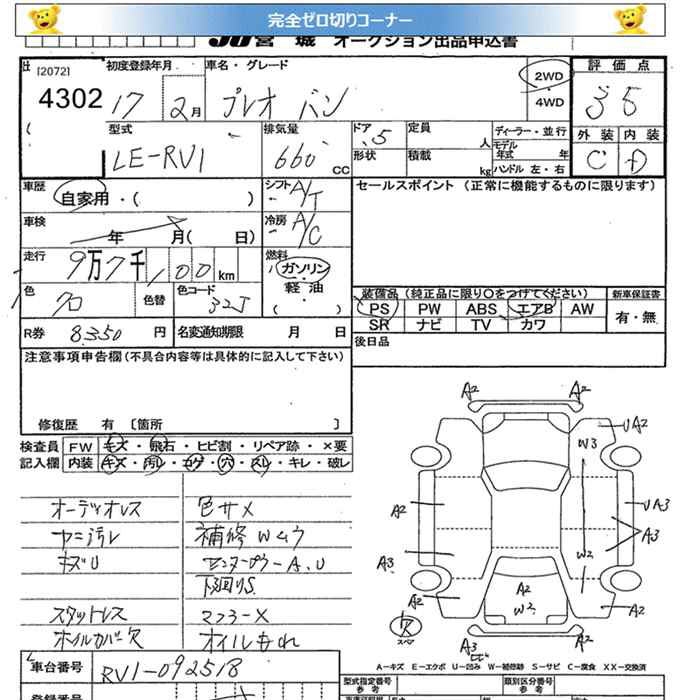 完全ゼロ切りコーナー
JU宮 城 オークション出品申込書
[2072] 初度登録年月 車名・グレード 2WD 評価点
4302 17 2月 プレオ バン 4WD 3.5
型式 排気量 ドア 定員 ディーラー・並行 外装 内装
LE-RV1 660 CC 5 人 モデル年式 年 C D
形状 積載 kg ハンドル 左・右
車歴 自家用・( ) シフト A/T セールスポイント (正常に機能するものに限ります)
車検 年 月( 日) 冷房 A/C
走行 9万7千100km 燃料 ガソリン・軽油 ( )
色 クロ 色替 色コード 32J 装備品 (純正品に限り〇をつけてください) 新車保証書
PS PW ABS エアB AW 有・無
R券 8350 円 名変通知期限 月 日 SR ナビ TV カワ
注意事項申告欄 (不具合内容等は具体的に記入して下さい) 後日品
修復歴 有 〔箇所 〕
検査員 FW キズ・飛石・ヒビ割・リペア跡・×要
記入欄 内装 キズ・汚レ・コゲ・穴・スレ・キレ・破レ
オーディオレス 色サメ
ヤニ汚レ 補修Wムラ
キズU センターピラーA、U
下回りS
スタットレス マフラーX
ホイルカバー欠 オイルもれ
A2 A2
UA2
W3
A2 UA3
A3
A3 W2
A2 A2 W2 A2
欠 スペア
A3
A-キズ E-エクボ U-凹み W-補修跡 S-サビ C-腐食 XX-交換済
車台番号 RV1-092518 型式指定番号 参考 類別区分番号 参考
登録番号